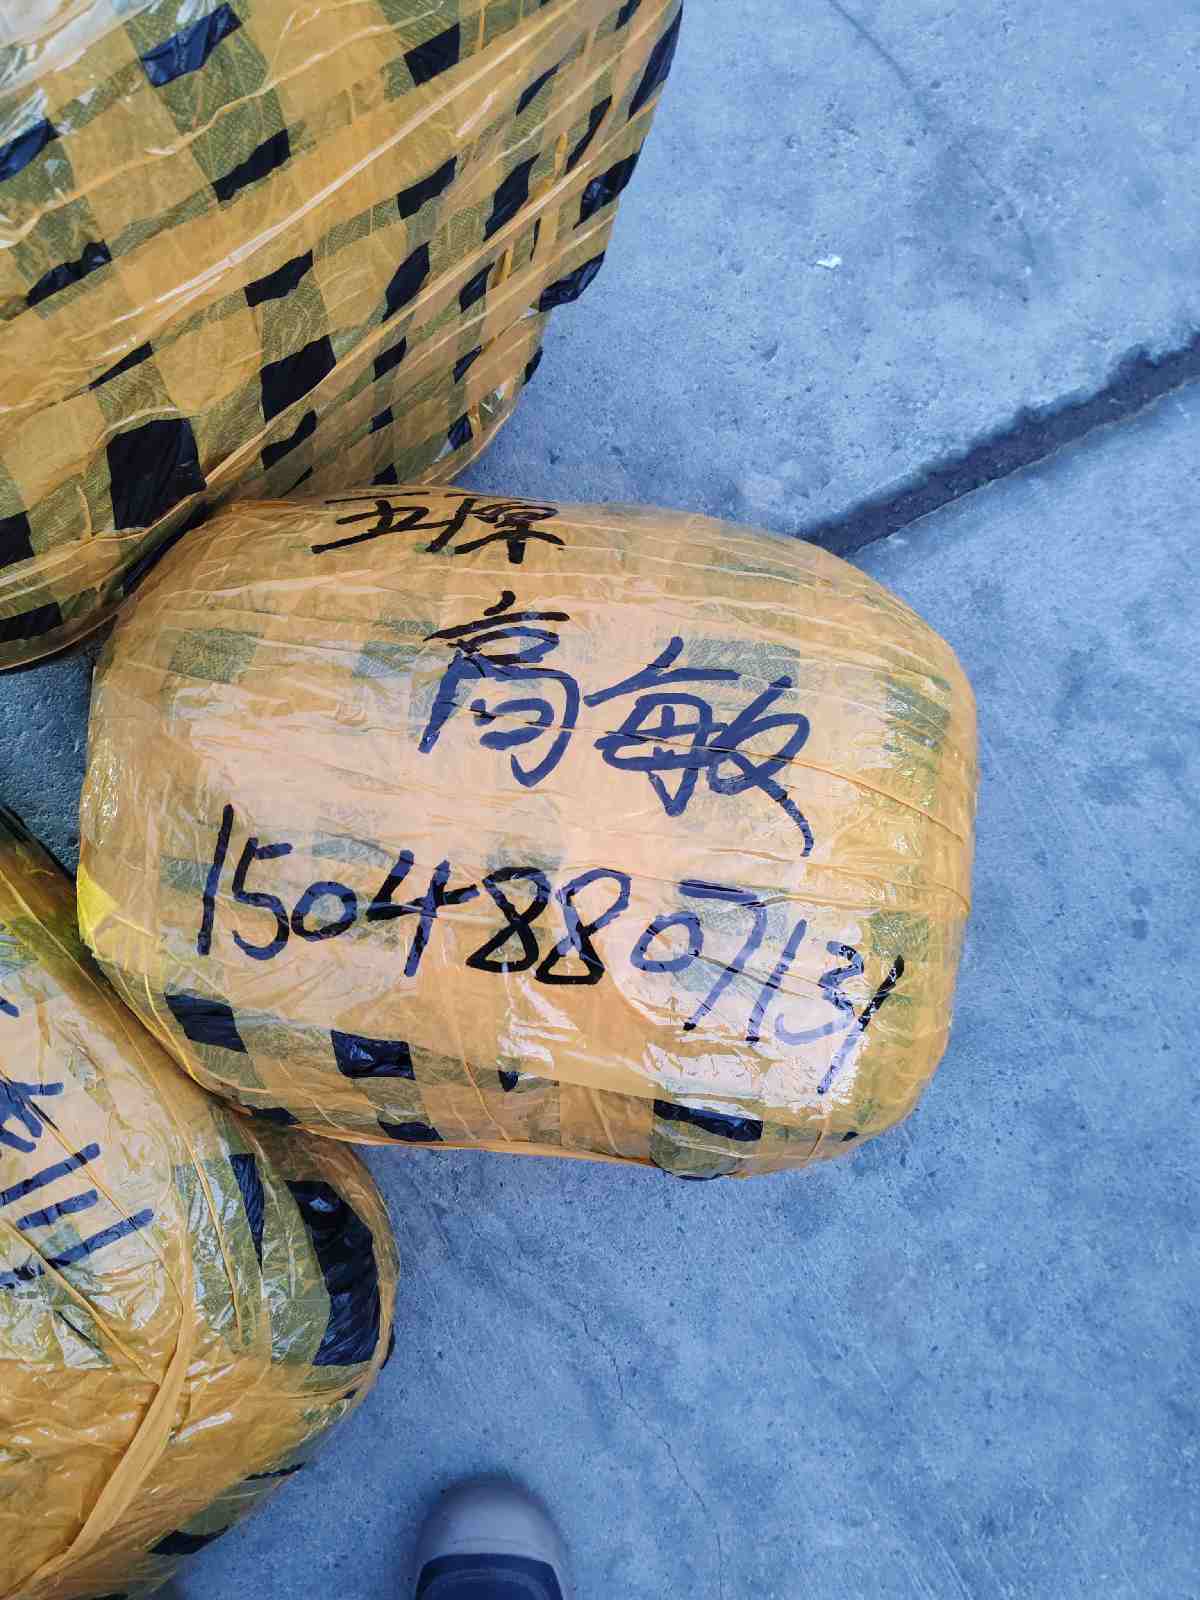 五原
高敏
15048807131